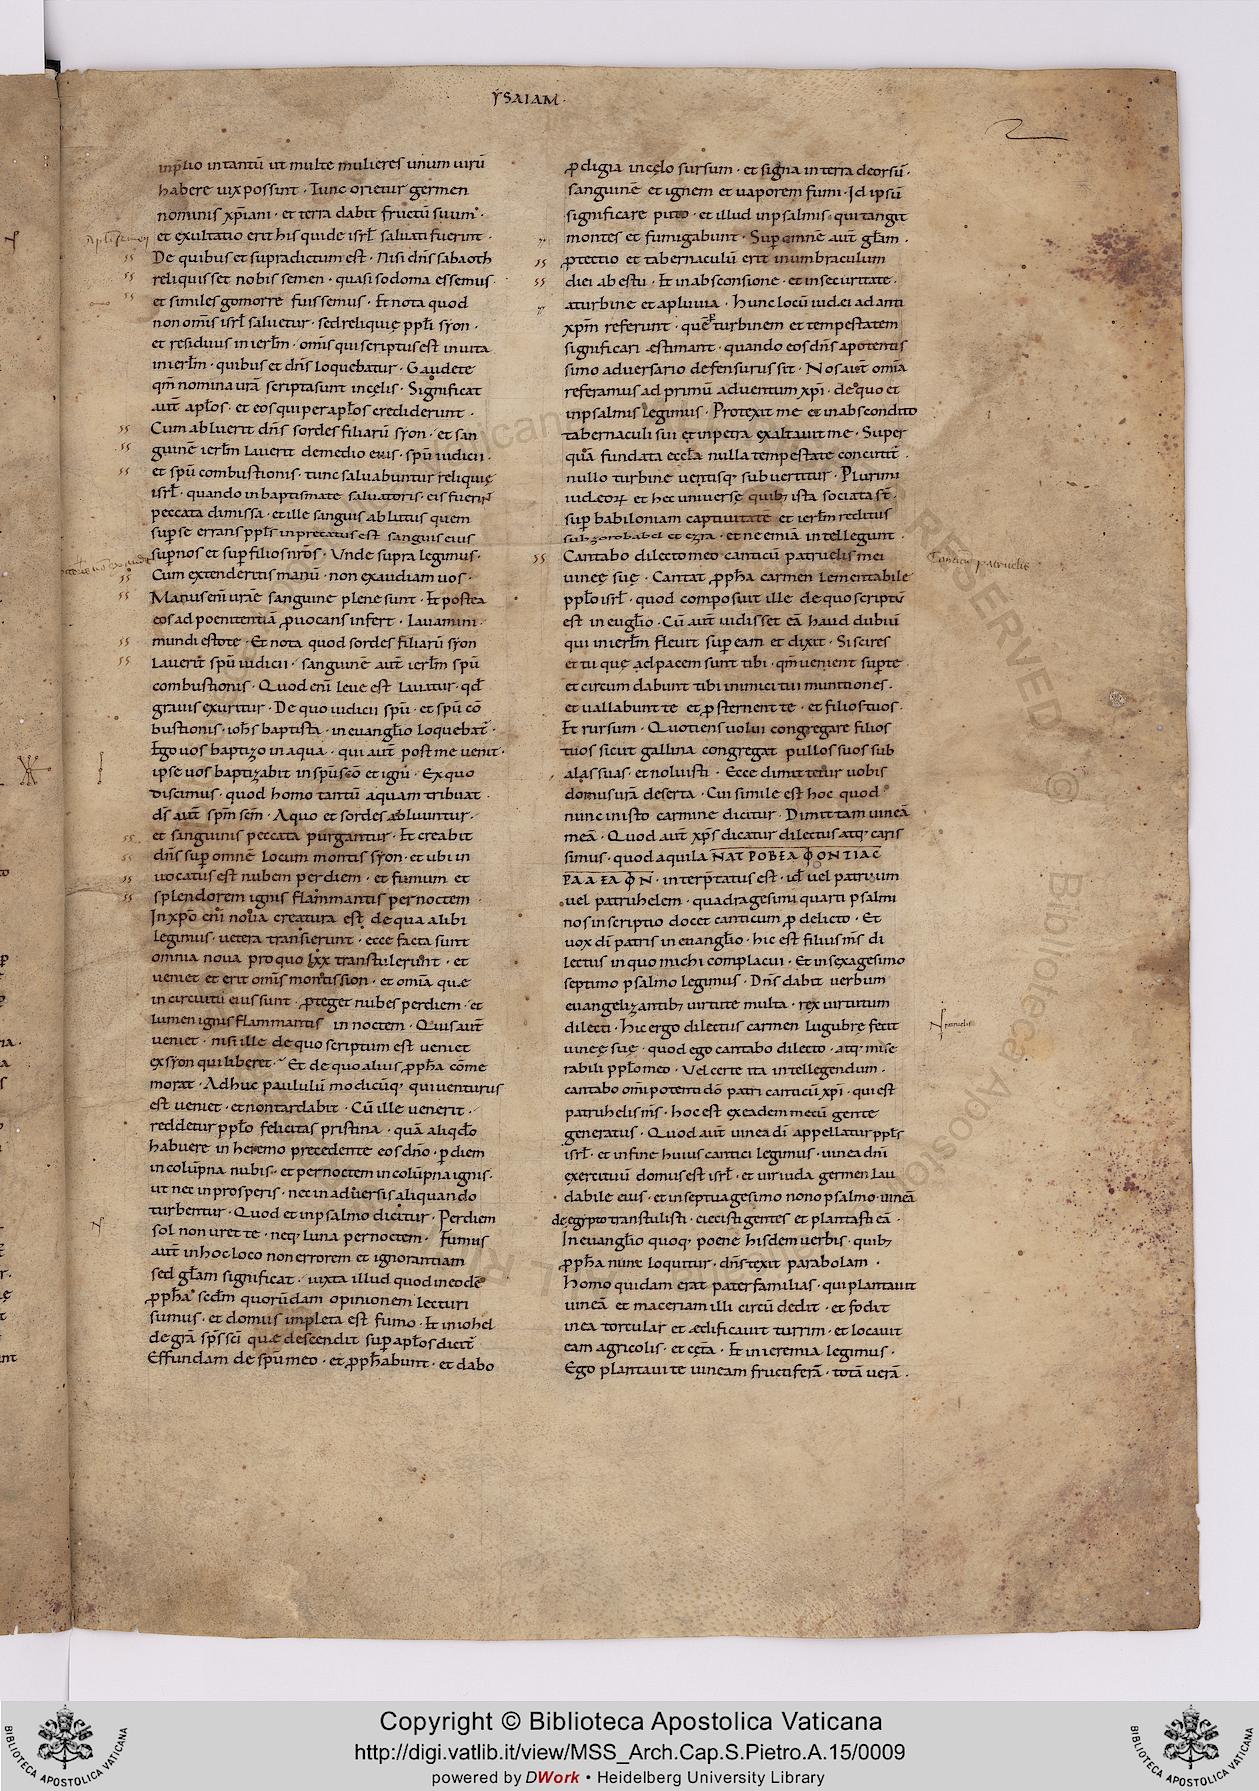 ẎSAIAM·
inp̄lio intantū ut multe mulieres unum uirū
habere uix possint · Tunc orietur germen
nominis xp̄iani · et terra dabit fructū suum ·
et exultatio erit his qui de isrł saluati fuerint ·
De quibus et supradictum est · Nisi dn̄s sabaoth
reliquisset nobis semen · quasi sodoma essemus ·
et similes gomorre fuissemus · Et nota quod
non om̄s isrł saluetur · sed reliquię ppłi syon ·
et residuus in ierłm · om̄s qui scriptus est in uita
in ierłm · quibus et dn̄s loquebatur · Gaudete
qm̄ nomina urā scripta sunt in cęlis · Significat
aut̄ apłos · et eos qui per apłos crediderunt ·
Cum abluerit dn̄s sordes filiarū syon · et san
guinē ierłm lauerit de medio eius · spū iudicii ·
et spū combustionis · tunc saluabuntur reliquię
isrł · quando in baptismate saluatoris · eis fuerint
peccata dimissa · et ille sanguis ablutus quem
sup se errans ppłs inprecatus est sanguis eius
sup nos et sup filios nr̄os · Unde supra legimus ·
Cum extenderitis manū · non exaudiam uos ·
Manus eni urāe sanguine plene sunt · Et postea
eos ad poenitentiā prouocans infert · Lauamini ·
mundi estote · Et nota quod sordes filiarū syon
lauerit spū iudicii · sanguinē aut̄ ierłm spū
combustionis · Quod enī leue est lauatur · qd̄
grauis exuritur · De quo iudicii spū · et spū cō
bustionis · ioħs baptista · in euangłio loquebat̄ ·
Ego uos baptizo in aqua · qui aut̄ post me uenit ·
ipse uos baptizabit in spū sc̄o et ignī · Ex quo
discimus · quod homo tantū aquam tribuat ·
ds̄ aut̄ spm̄ scm̄ · A quo et sordes abluuntur ·
et sanguinis peccata purgantur · Et creabit
dn̄s sup omnē locum montis syon · et ubi in
uocatus est nubem per diem · et fumum et
splendorem ignis flammantis per noctem ·
In xp̄o enī noua creatura est · de qua alibi
legimus · uetera transierunt · ecce facta sunt
omnia noua pro quo lxx transtulerunt · et
ueniet et erit om̄is mons syon · et om̄ia quæ
in circuitu eius sunt · proteget nubes per diem · et
lumen ignis flammantis in noctem · Quis aut̄
ueniet · nisi ille de quo scriptum est ueniet
ex syon qui liberet · Et de quo alius ppħa cōme
morat · Adhuc paululū modicūq; qui uenturus
est ueniet · et non tardabit · Cū ille uenerit ·
reddetur ppło felicitas pristina · quā aliqđo
habuere in heremo precedente eos dn̄o · p diem
in colūpna nubis · et per noctem in colūpna ignis ·
ut nec in prosperis · nec in aduersis aliquando
turbentur · Quod et in psalmo dicitur · Per diem
sol non uret te · neq; luna per noctem · Fumus
aut̄ in hoc loco non errorem et ignorantiam
sed głam significat · iuxta illud quod in eodē
ppħa scđm quorūdam opinionem lecturi
sumus · et domus impleta est fumo · Et in iohel
de grā sp̄s sc̄i quæ descendit sup apłos dicit̄
Effundam de spū meo · et ppħabunt · et dabo
pdigia in cęlo sursum · et signa in terra deorsū ·
sanguinē et ignem et uaporem fumi · Id ipsū
significare puto · et illud in psalmis · qui tangit
montes et fumigabunt · Sup omnē aut̄ głam ·
ptectio et tabernaculū erit in umbraculum
diei ab estu · Et in absconsione · et in securitate ·
a turbine et a pluuia · Hunc locū iudei ad anti
xpm̄ referunt · quē turbinem et tempestatem
significari estimant · quando eos dn̄s a potentis
simo aduersario defensurus sit · Nos aut̄ om̄ia
referamus ad primū aduentum xp̄i · de quo et
in psalmis legimus · Protexit me et in abscondito
tabernaculi sui et in petra exaltauit me · Super
quā fundata eccła nulla tempestate concutit̄ ·
nullo turbine uentisq; subuertitur · Plurimi
iudeoꝝ et hec uniuersę quib; ista sociata st̄ ·
sup babiloniam captiuitatē et ierłm reditus
sub zorobabel et ezra · et neemiā intellegunt ·
Cantabo dilecto meo canticū patruelis mei
uineę suę · Cantat ppħa carmen lementabile
ppło isrł · quod composuit ille de quo scriptū
est in eugłio · Cū aut̄ uidisset eā haud dubiū
qui in ierłm fleuit sup eam et dixit · Si scires
et tu quę ad pacem sunt tibi · qm̄ uenient sup te
et circum dabunt tibi inimici tui munitiones ·
et uallabunt te et psternent te · et filios tuos ·
Et rursum · Quotiens uolui congregare filios
tuos sicut gallina congregat pullos suos sub
alas suas · et noluisti · Ecce dimittetur uobis
domus urā deserta · Cui simile est hoc quod
nunc in isto carmine dicitur · Dimittam uineā
meā · Quod aut̄ xp̄s dicatur dilectus atq; caris
simus · quod aquila NAT POBEA ϕONTIAC
PA A EA ϕ N · interp̄tatus est · id̄ uel patruum
uel patruhelem · quadragesimi quarti psalmi
nos inscriptio docet canticum p delicto · Et
uox di patris in euangłio · hic est filius m̄s di
lectus in quo michi complacui · Et in sexagesimo
septimo psalmo legimus · Dn̄s dabit uerbum
euangelizantib; uirtute multa · rex uirtutum
dilecti · Hic ergo dilectus carmen lugubre fecit
uineę suę · quod ego cantabo dilecto · atq; mise
rabili ppło meo · Vel certe ita intellegendum ·
cantabo om̄ipotenti dō patri canticū xp̄i · qui est
patruhelis m̄s · hoc est ex eadem mecū gente
generatus · Quod aut̄ uinea di appellatur ppłs
isrł · et in fine huius cantici legimus · uinea dnī
exercituū domus est isrł · et uir iuda germen lau
dabile eius · et in septuagesimo nono psalmo · uineā
de egypto transtulisti · eiecisti gentes et plantasti eā ·
In euangłio quoq; poene hisdem uerbis · quib;
ppħa nunc loquitur · dn̄s texit parabolam ·
Homo quidam erat paterfamilias · qui plantauit
uineā et maceriam illi circū dedit · et fodit
in ea torcular et ædificauit turrim · et locauit
eam agricolis · et cęta · Et in ieremia legimus ·
Ego plantaui te uineam fructiferā · totā uerā ·
Canticū patruelis
patruelis
Copyright © Biblioteca Apostolica Vaticana
http://digi.vatlib.it/view/MSS_Arch.Cap.S.Pietro.A.15/0009
powered by DWork • Heidelberg University Library
BIBLIOTECA APOSTOLICA VATICANA
BIBLIOTECA APOSTOLICA VATICANA